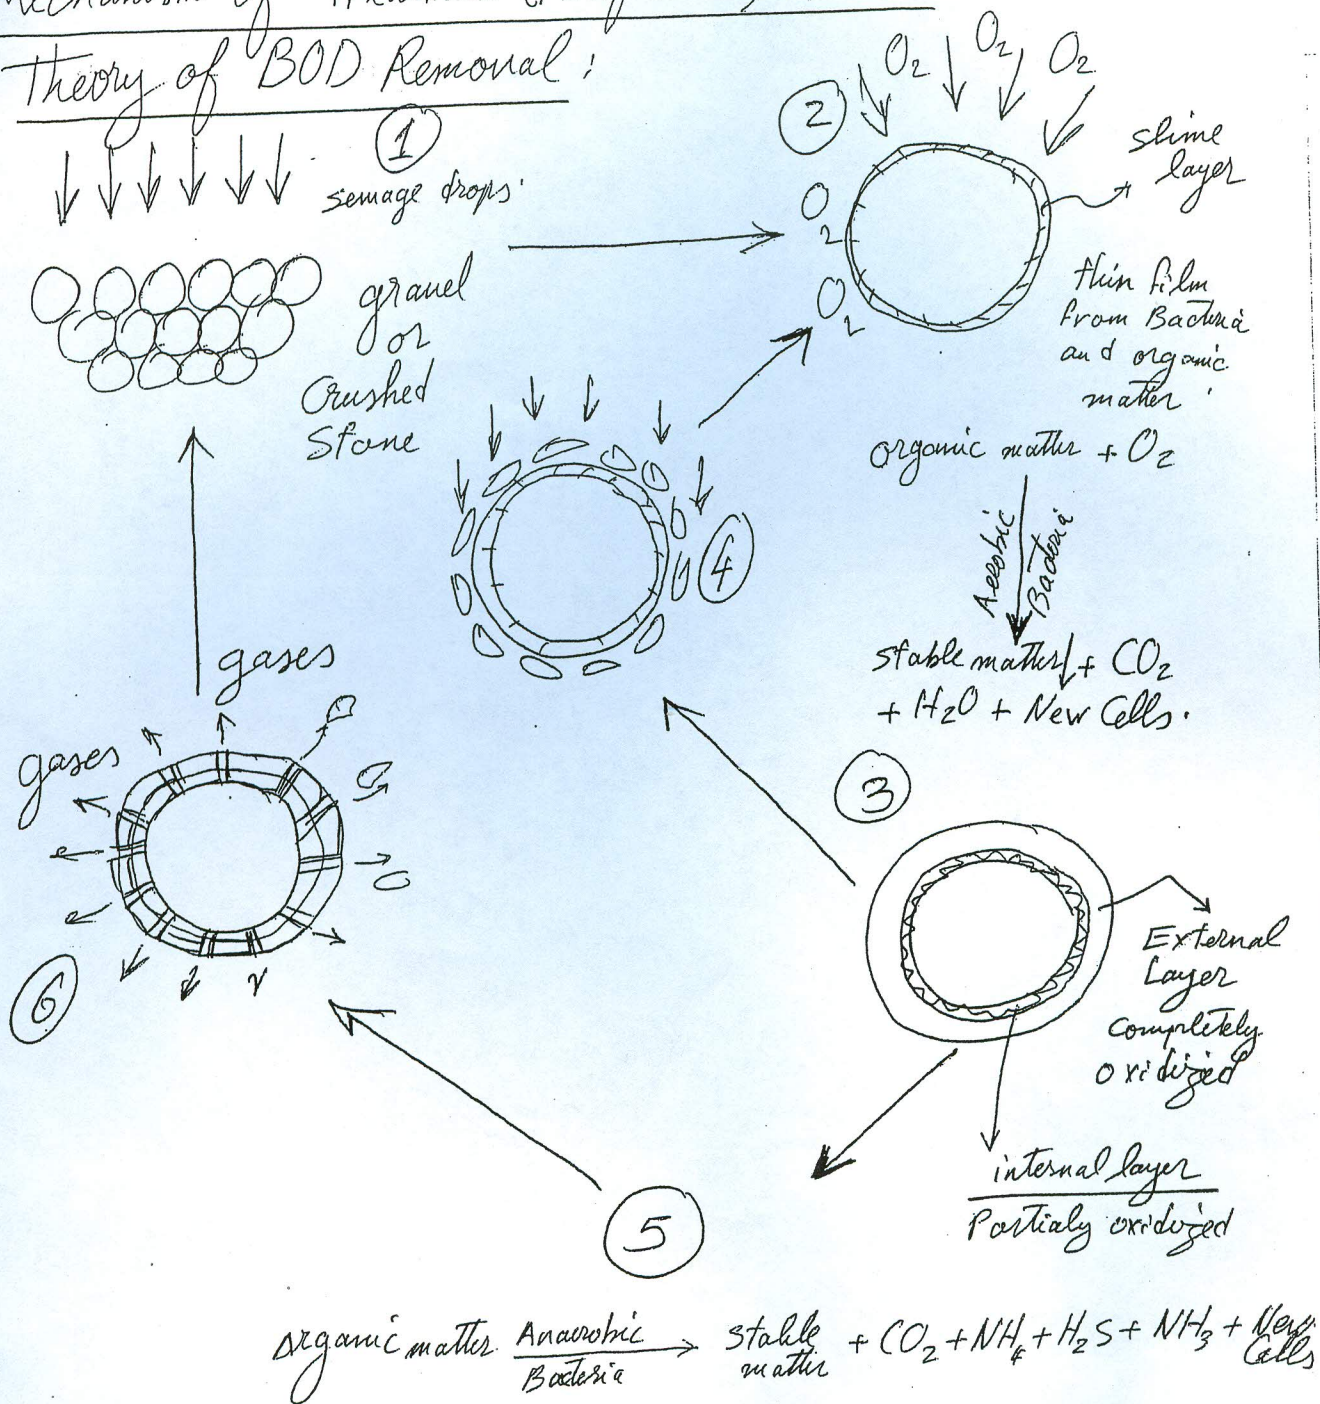 Mechanism of
Theory of BOD Removal:
1
sewage drops.
gravel
or
Crushed
Stone
2
O2 O2 O2
O2
O2
slime
layer
thin film
from Bacteria
and organic
matter.
organic matter + O2
Aerobic
Bacteria
stable matter↓ + CO2
+ H2O + New Cells.
3
External
Layer
completely
oxidized
internal layer
Partialy oxidized
4
5
organic matter Anaerobic
Bacteria
stable
matter
+ CO2 + NH4 + H2S + NH3 + New
Cells
6
gases
gases